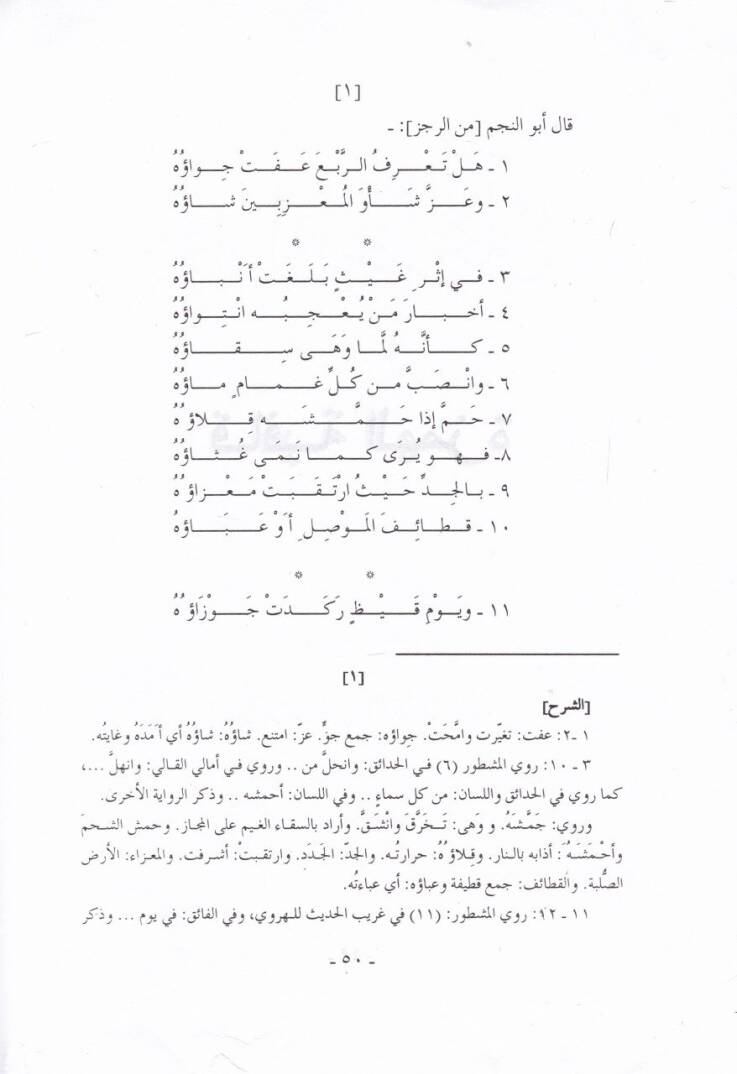 [١]
قال أبو النجم [من الرجز]: ـ
١ ـ هَلْ تَعْرِفُ الرَّبْعَ عَفَتْ جِواؤُهُ
٢ ـ وعَزَّ شَأْوَ المُعْزِبِينَ شاؤُهُ
* *
٣ ـ في إثْرِ غَيْثٍ بَلَغَتْ أنْباؤُهُ
٤ ـ أخبارَ مَنْ يُعْجِبُه انْتِواؤُهُ
٥ ـ كأنَّهُ لمَّا وَهَى سِقاؤُهُ
٦ ـ وانْصَبَّ من كُلِّ غَمامٍ ماؤُهُ
٧ ـ حَمَّ إذا حَمَّشَه قِلاؤُهُ
٨ـ فهو يُرَى كما نَمَى غُثاؤُهُ
٩ ـ بالجِدِّ حَيْثُ ارْتَقَبَتْ مَعْزاؤُهُ
١٠ ـ قطائِفَ المَوْصِلِ أوْ عَبَاؤُهُ
* *
١١ ـ ويَوْمِ قَيْظٍ رَكَدَتْ جَوْزَاؤُهُ
[١]
[الشرح]
١ ـ٢: عفت: تغيّرت وامَّحَتْ. جِواؤه: جمع جوٍّ. عزّ: امتنع. شاؤُهُ: شاؤُهُ أي أمَدَهُ وغايتُه.
٣ ـ ١٠: روي المشطور (٦) في الحدائق: وانحلَّ من .. وروي في أمالي القالي: وانهلَّ ...،
كما روي في الحدائق واللسان: من كل سماءٍ .. وفي اللسان: أحمشه .. وذكر الرواية الأخرى.
وروي: جَمَّشَهُ. و وَهى: تَخَرَّقَ وانْشَقَّ. وأراد بالسقاء الغيم على المجاز. وحمش الشحمَ
وأحْمَشَهُ: أذابه بالنار. وقِلاؤُهُ: حرارته. والجدّ: الجَدَد. وارتقبتْ: أشرفت. والمعزاء: الأرض
الصُّلبة. والقطائف: جمع قطيفة وعباؤه: أي عباءتُه.
١١ ـ ١٢: روي المشطور: (١١) في غريب الحديث للهروي، وفي الفائق: في يوم ... وذكر
ـ ٥٠ ـ